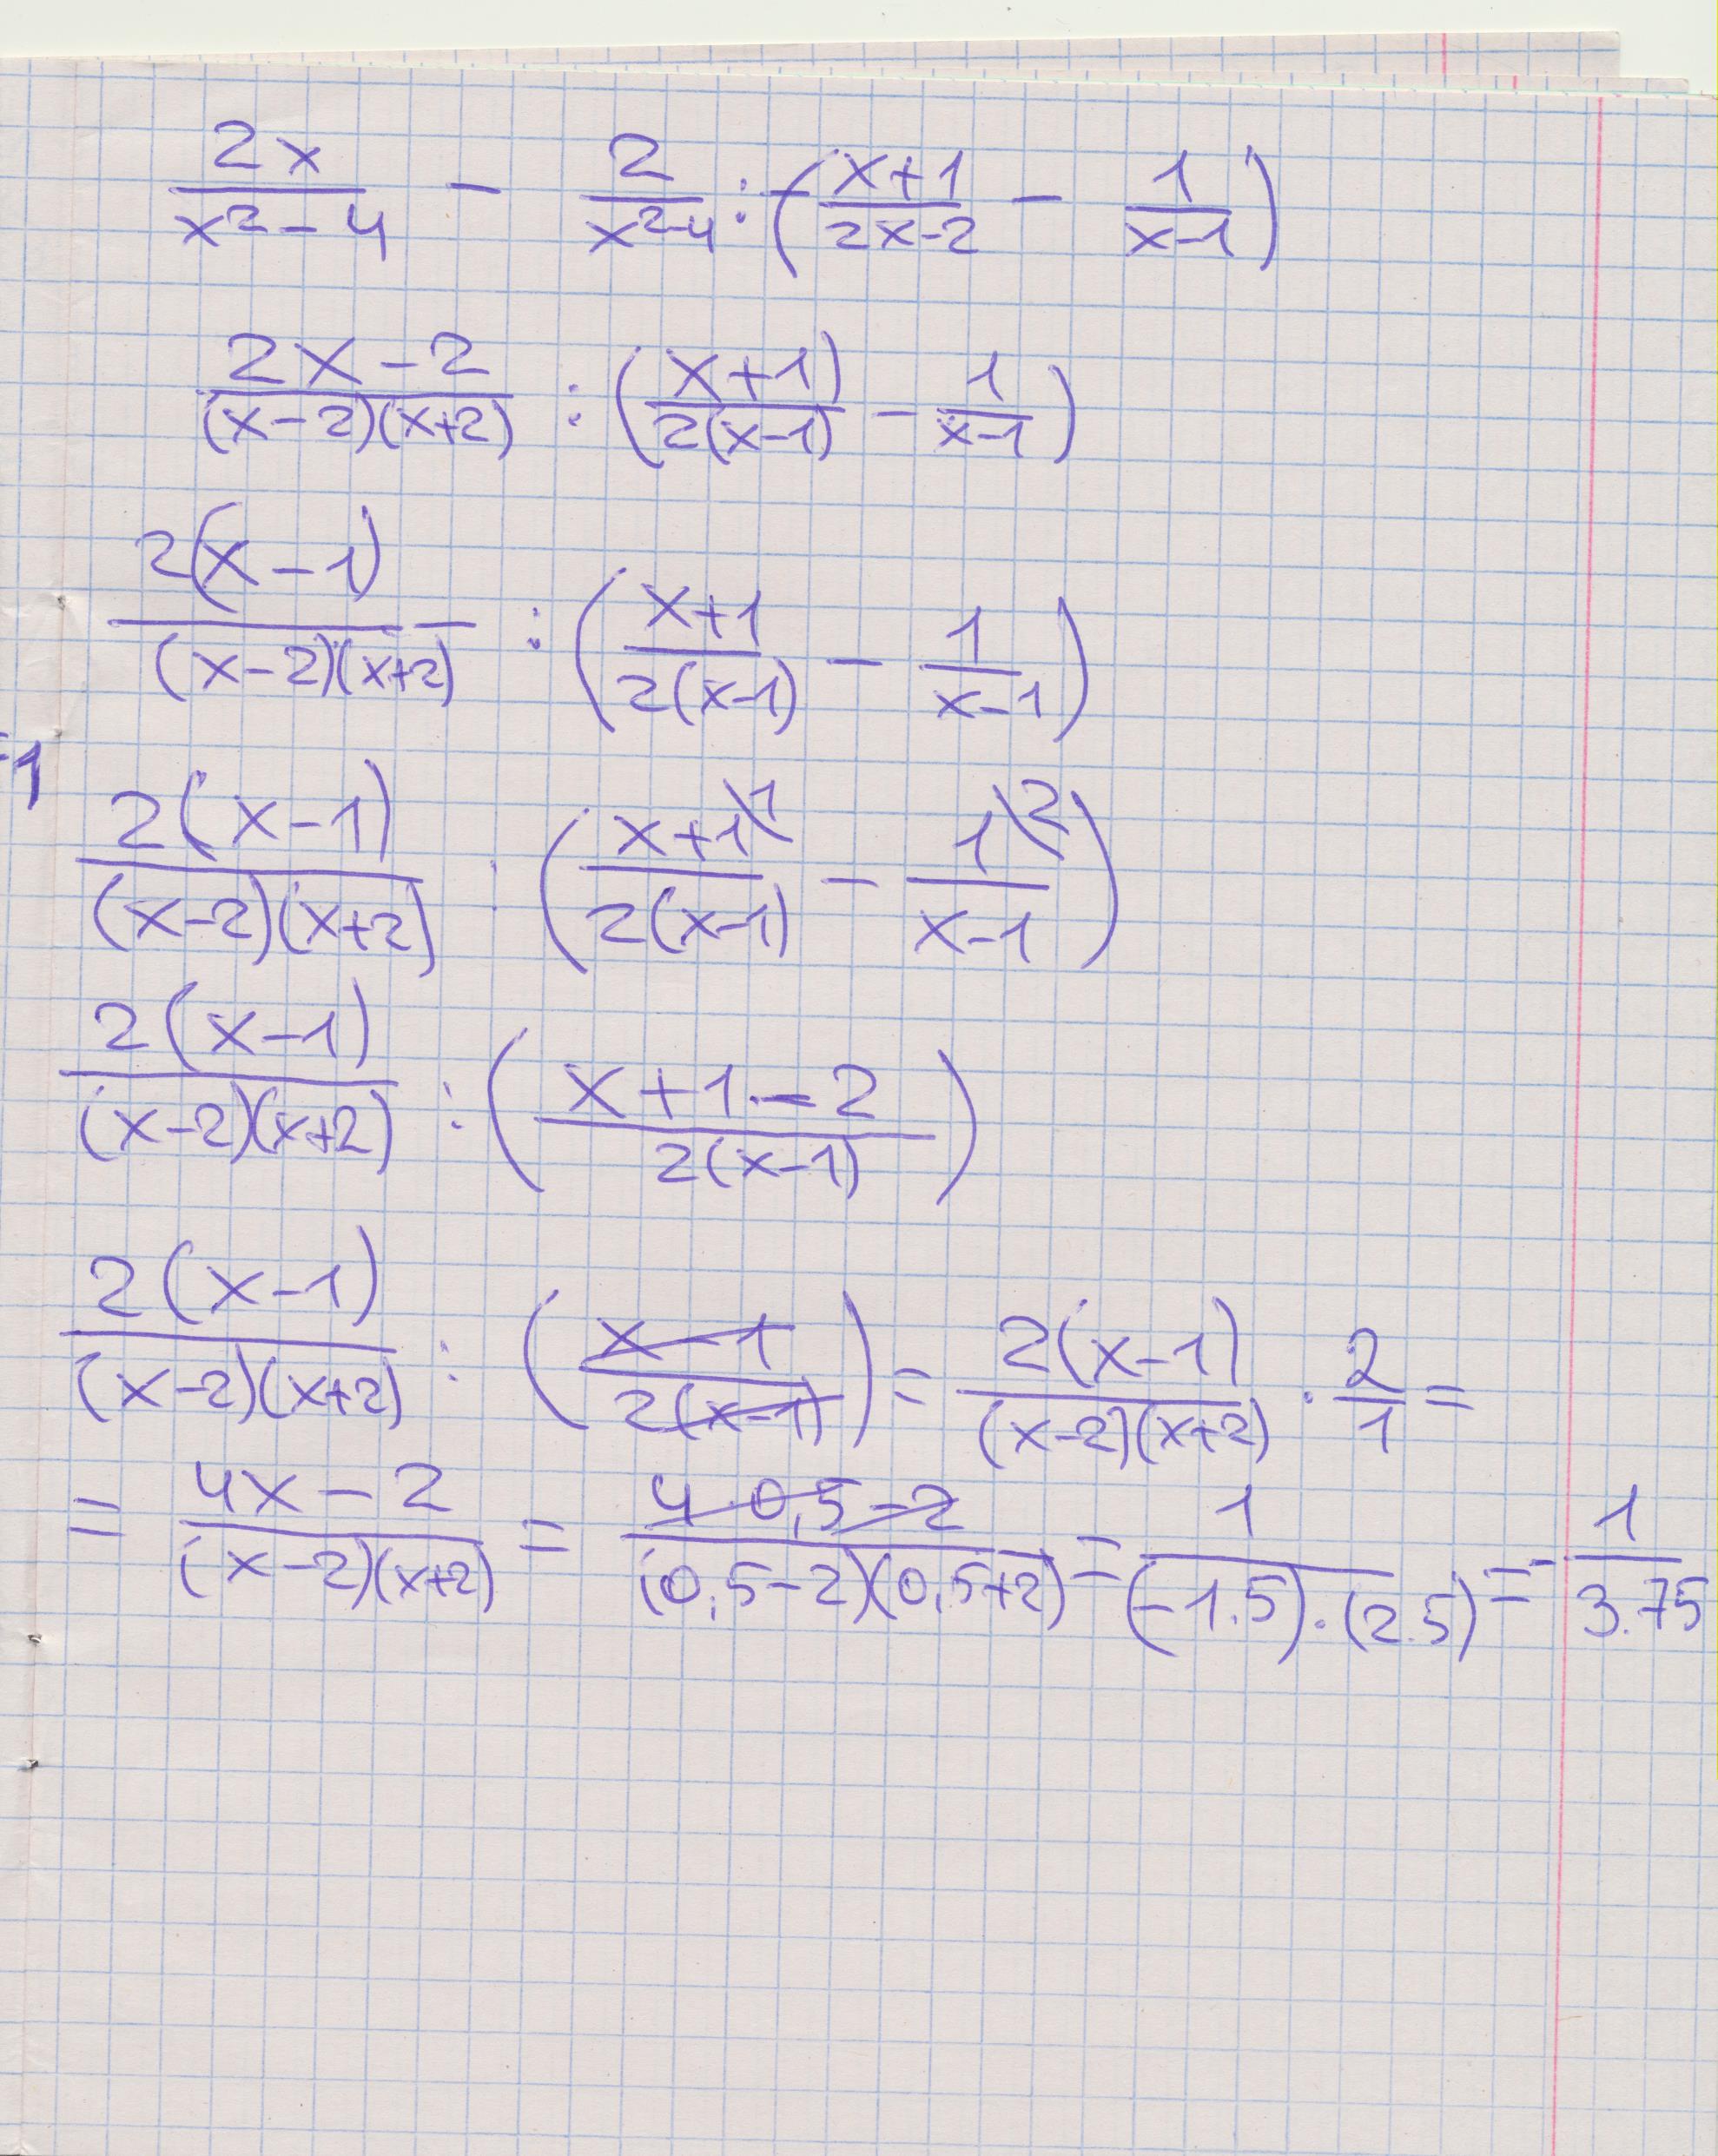 2x/(x²-4) - 2/(x²-4) : ((x+1)/(2x-2) - 1/(x-1))
(2x-2)/((x-2)(x+2)) : ((x+1)/(2(x-1)) - 1/(x-1))
2(x-1)/((x-2)(x+2)) : ((x+1)/(2(x-1)) - 1/(x-1))
-1
2(x-1)/((x-2)(x+2)) : ((x+1\1)/(2(x-1)) - 1\2/(x-1))
2(x-1)/((x-2)(x+2)) : ((x+1-2)/(2(x-1)))
2(x-1)/((x-2)(x+2)) : ((x-1)/(2(x-1))) = 2(x-1)/((x-2)(x+2)) · 2/1 =
= (4x-2)/((x-2)(x+2)) = (4·0,5-2)/((0,5-2)(0,5+2)) = 1/((-1.5)·(2.5)) = - 1/3.75